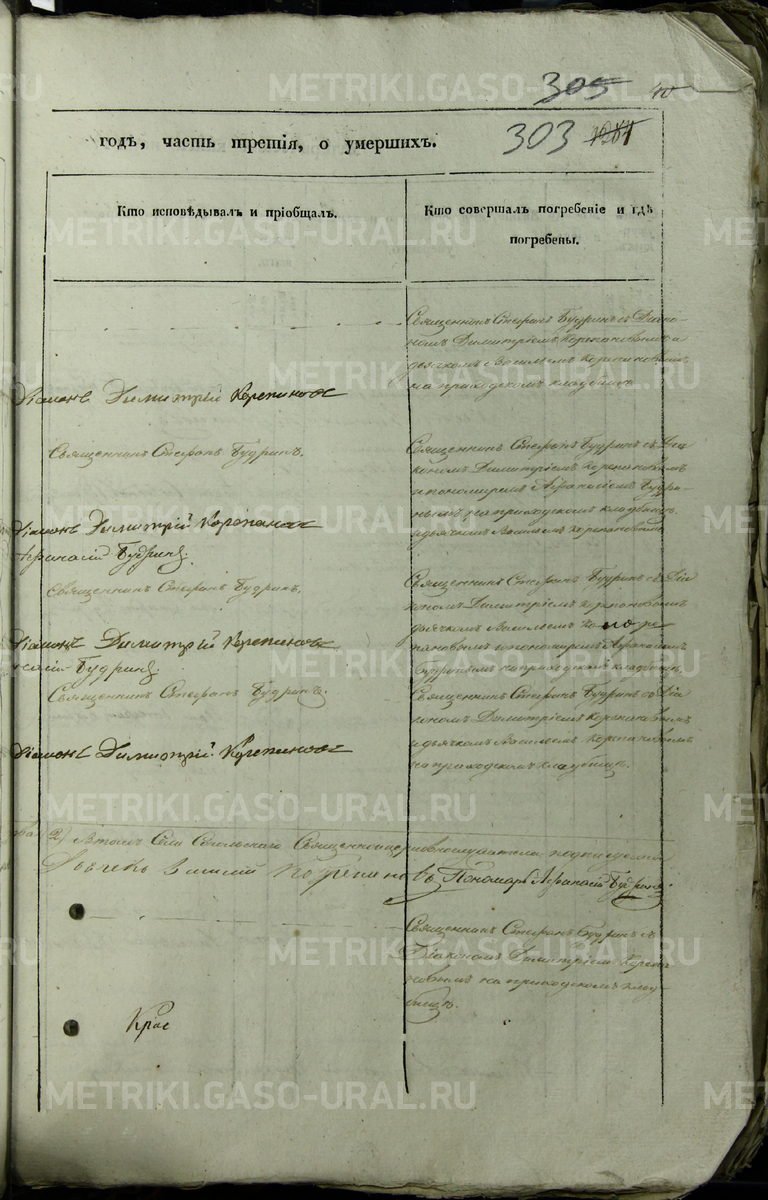 305
303
годъ, часть третія, о умершихъ.
Кто исповѣдывалъ и пріобщалъ.
Кто совершалъ погребеніе и гдѣ
погребены.
Священникъ Стефанъ Будринъ съ Діако-
номъ Димитріемъ Корепановымъ и
дьячкомъ Василіемъ Корепановымъ
на приходскомъ кладбищѣ.
Діаконъ Димитрій Корепановъ
Священникъ Стефанъ Будринъ.
Священникъ Стефанъ Будринъ съ Діа-
кономъ Димитріемъ Корепановымъ
и пономаремъ Афанасіемъ Будри-
нымъ на приходскомъ кладбищѣ
и дьячкомъ Василіемъ Корепановымъ
Діаконъ Димитрій Корепановъ
Афанасій Будринъ.
Священникъ Стефанъ Будринъ.
Священникъ Стефанъ Будринъ съ Діа-
кономъ Димитріемъ Корепановымъ
дьячкомъ Василіемъ Коре
пановымъ и пономаремъ Афанасіемъ
Будринымъ на приходскомъ кладбищѣ.
Діаконъ Димитрій Корепановъ
Будринъ.
Священникъ Стефанъ Будринъ.
Священникъ Стефанъ Будринъ съ Діа-
кономъ Димитріемъ Корепановымъ
и дьячкомъ Василіемъ Корепановымъ
на приходскомъ кладбищѣ.
Діаконъ Димитрій Корепановъ
2) Въ томъ Села Священноцерковнослужители подписуемся
Дьячекъ Василій Корепановъ Пономарь Афанасій Будринъ
Священникъ Стефанъ Будринъ съ
Діакономъ Димитріемъ Корепа-
новымъ на приходскомъ клад-
бищѣ.
Крас
METRIKI.GASO-URAL.RU